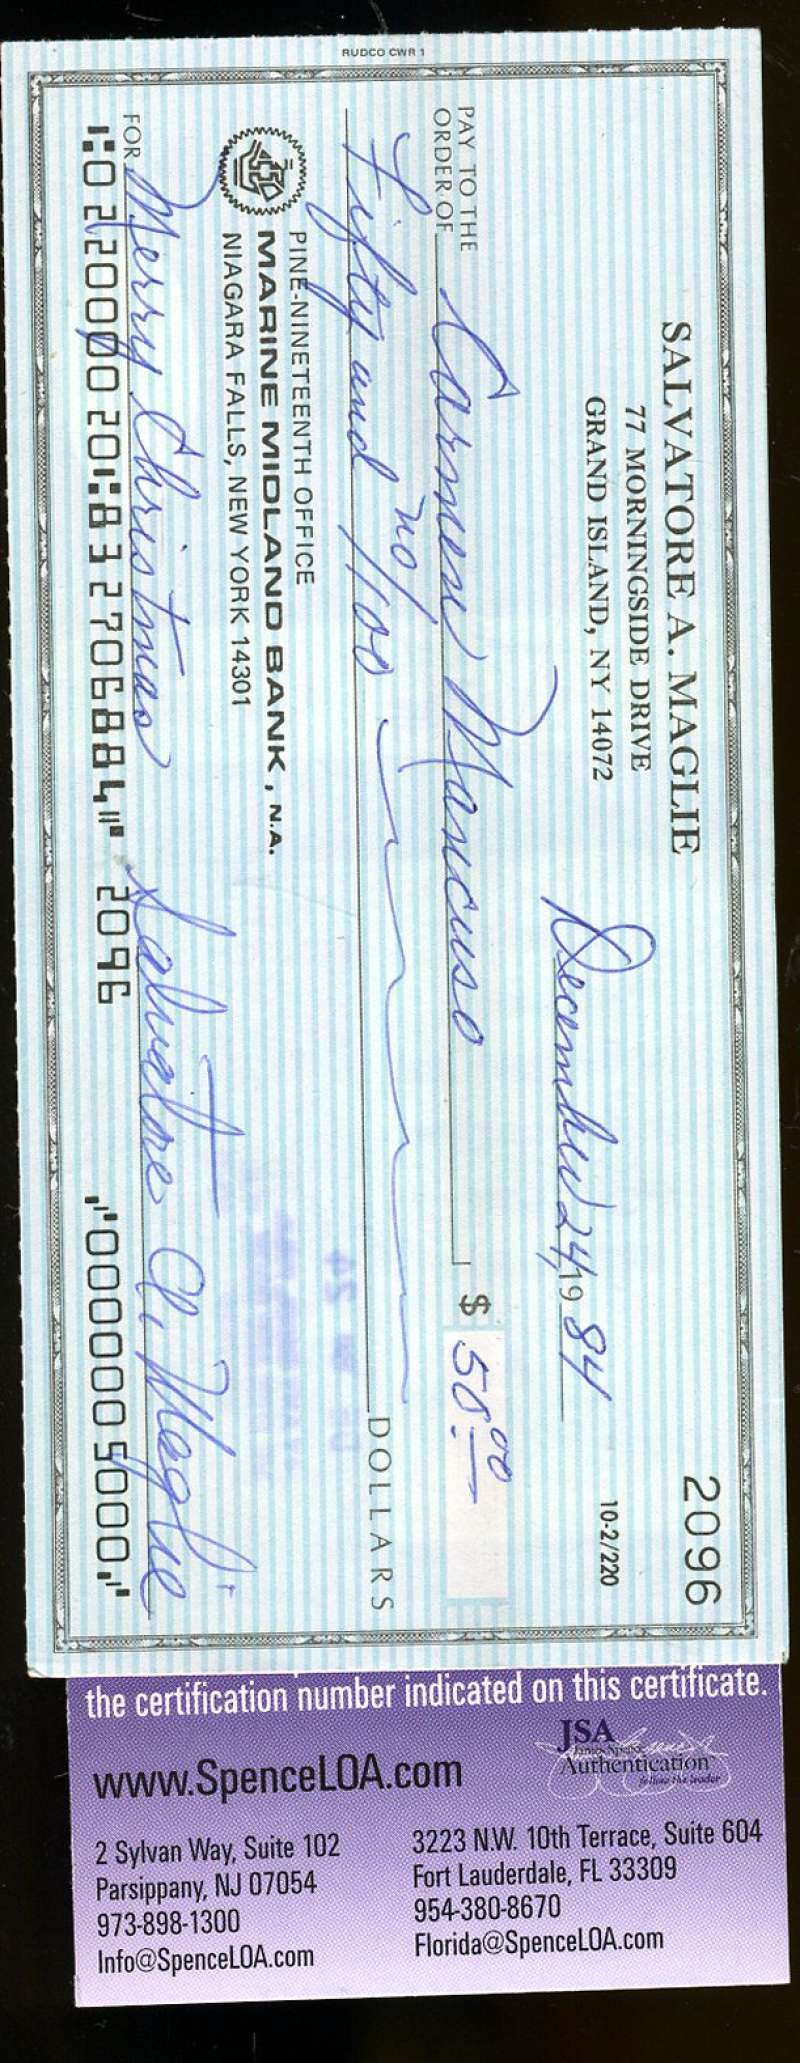 RUDCO CWR 1
SALVATORE A. MAGLIE
77 MORNINGSIDE DRIVE
GRAND ISLAND, NY 14072
2096
10-2/220
December 24, 19 84
PAY TO THE
ORDER OF Carmen Mancuso $ 50.00
Fifty and no/100 DOLLARS
PINE-NINETEENTH OFFICE
MARINE MIDLAND BANK, N.A.
NIAGARA FALLS, NEW YORK 14301
FOR Merry Christmas Salvatore A. Maglie
⑆022000020⑆832706884⑈ 2096 ⑈0000005000⑈
the certification number indicated on this certificate.
JSA
James Spence
Authentication
follow the leader
www.SpenceLOA.com
2 Sylvan Way, Suite 102
Parsippany, NJ 07054
973-898-1300
Info@SpenceLOA.com
3223 N.W. 10th Terrace, Suite 604
Fort Lauderdale, FL 33309
954-380-8670
Florida@SpenceLOA.com